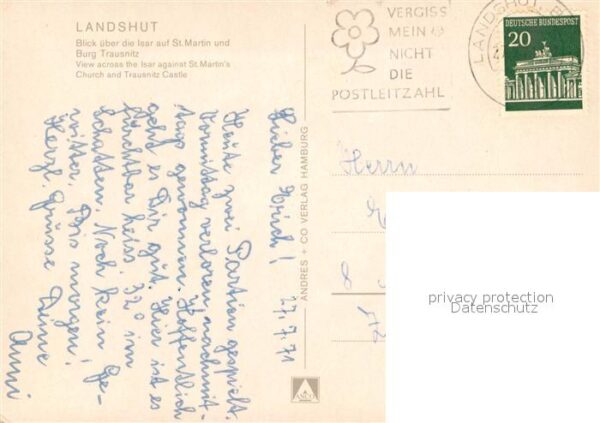 LANDSHUT
Blick über die Isar auf St. Martin und
Burg Trausnitz
View across the Isar against St. Martin's
Church and Trausnitz Castle
VERGISS
MEIN
NICHT
DIE
POSTLEITZAHL
LANDSHUT
DEUTSCHE BUNDESPOST
20
27.7.71
Lieber
Heute zwei Partien gespielt.
Vormittag verloren, nachmit-
tag gewonnen. Hoffentlich
geht es Dir gut. Hier ist es
furchtbar heiss, 32° im
Schatten. Noch kein Ge-
witter. Bis morgen!
Herzl. Grüsse Deine
Anni
ANDRES + CO VERLAG HAMBURG
ANCO
Herrn
8
privacy protection
Datenschutz